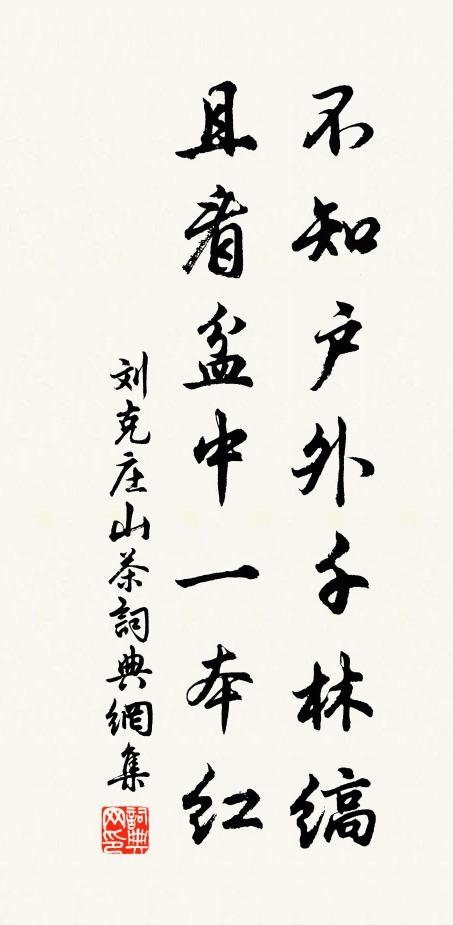 不知户外千林缟
且看盆中一本红
刘克庄山茶詞典網集
詞典网印